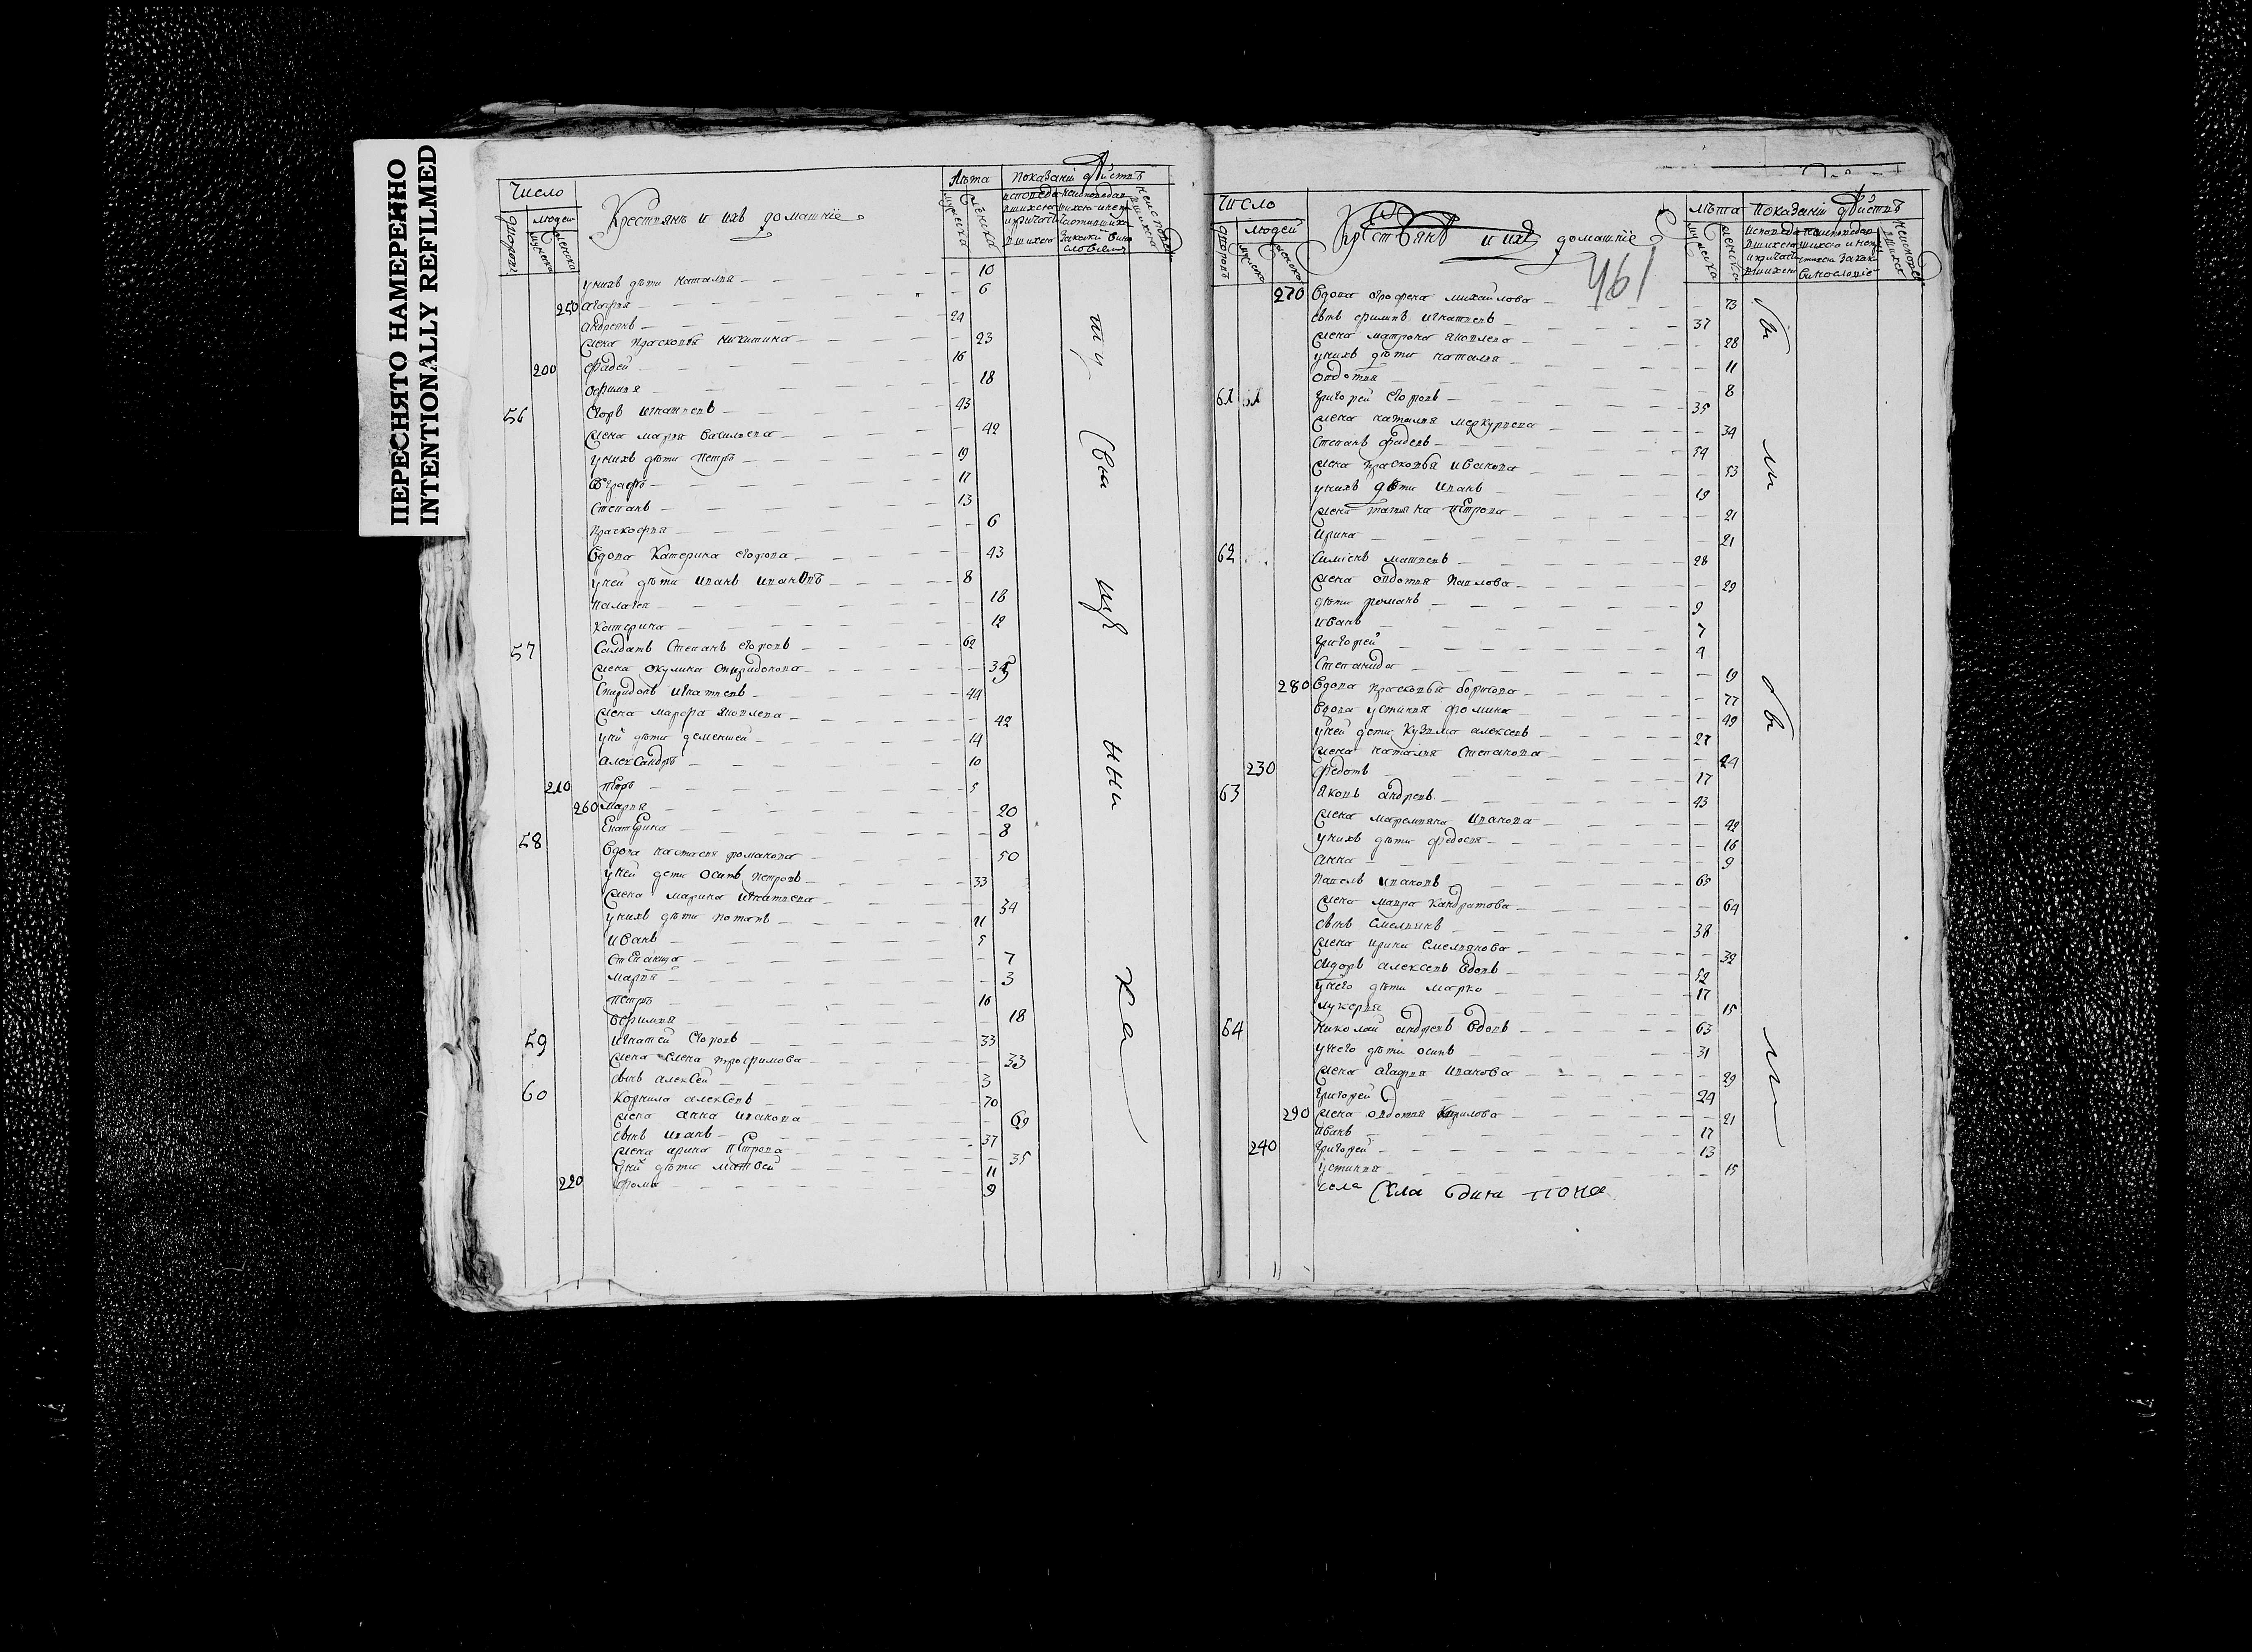 ПЕРЕСНЯТО НАМЕРЕННО
INTENTIONALLY REFILMED
Число
людей
Крестьянъ и ихъ домашніе
Лѣта
Показаніи дѣйствъ
унихъ дѣти наталия 10
250 агафия 6
андреянъ 24
жена прасковья никитина 23
200 фадей 16
офимия 18
56 егоръ игнатиевъ 43
жена марья василиева 42
унихъ дѣти петръ 19
17
степанъ 13
праскофия 6
вдова катерина 43
уней дѣти иванъ ивановъ 8
палагея 18
катерина 12
57 салдатъ степанъ егоровъ 62
жена окулина спиридонова
спиридонъ игнатиевъ 44
жена марфа яковлева 42
уней дѣти дементей 14
александръ 10
210 егоръ 5
260 мария 20
екатерина 8
58 вдова настасия романова 50
уней дети осипъ петровъ 33
жена марина игнатиева 34
унихъ дѣти потапъ 11
иванъ 5
степанида 7
марья 3
петръ 16
офимия 18
59 игнатей егоровъ 33
жена елена трофимова 33
сынъ алексей 3
60 корнила алексеевъ 70
жена анна иванова 69
сынъ иванъ 37
жена ирина петрова 35
уней дѣти матвей 11
220 фома 9
Число
людей
Крестьянъ и ихъ домашніе
461
лѣта
показаніи дѣйствъ
270 вдова огрофена михайлова 73
сынъ филипъ игнатиевъ 37
жена матрона яковлева 28
унихъ дѣти наталия 11
овдотия 8
61 григорей егоровъ 35
жена наталия меркуриева 34
степанъ фадеевъ 54
жена прасковья иванова 53
унихъ дѣти иванъ 19
жена татияна петрова 21
ирина 21
62 симионъ матвеевъ 28
жена овдотия павлова 29
дѣти романъ 9
иванъ 7
григорей 4
степанида 19
280 вдова прасковья борисова 77
вдова устиния фомина 49
уней дети кузма алексеевъ 27
жена наталия степанова 24
230 федотъ 17
63 яковъ андреевъ 43
жена маремьяна иванова 42
унихъ дѣти федосия 16
анна 9
павелъ ивановъ 65
жена мавра кандратова 64
сынъ емелиянъ 38
жена ирина емелиянова 32
сидоръ алексеевъ вдовъ 52
унего дѣти марко 17
лукерия 15
64 николай андреевъ вдовъ 63
унего дѣти осипъ 31
жена агафия иванова 29
григорей 24
290 жена овдотия кирилова 21
иванъ 17
240 григорей 13
устиния 15